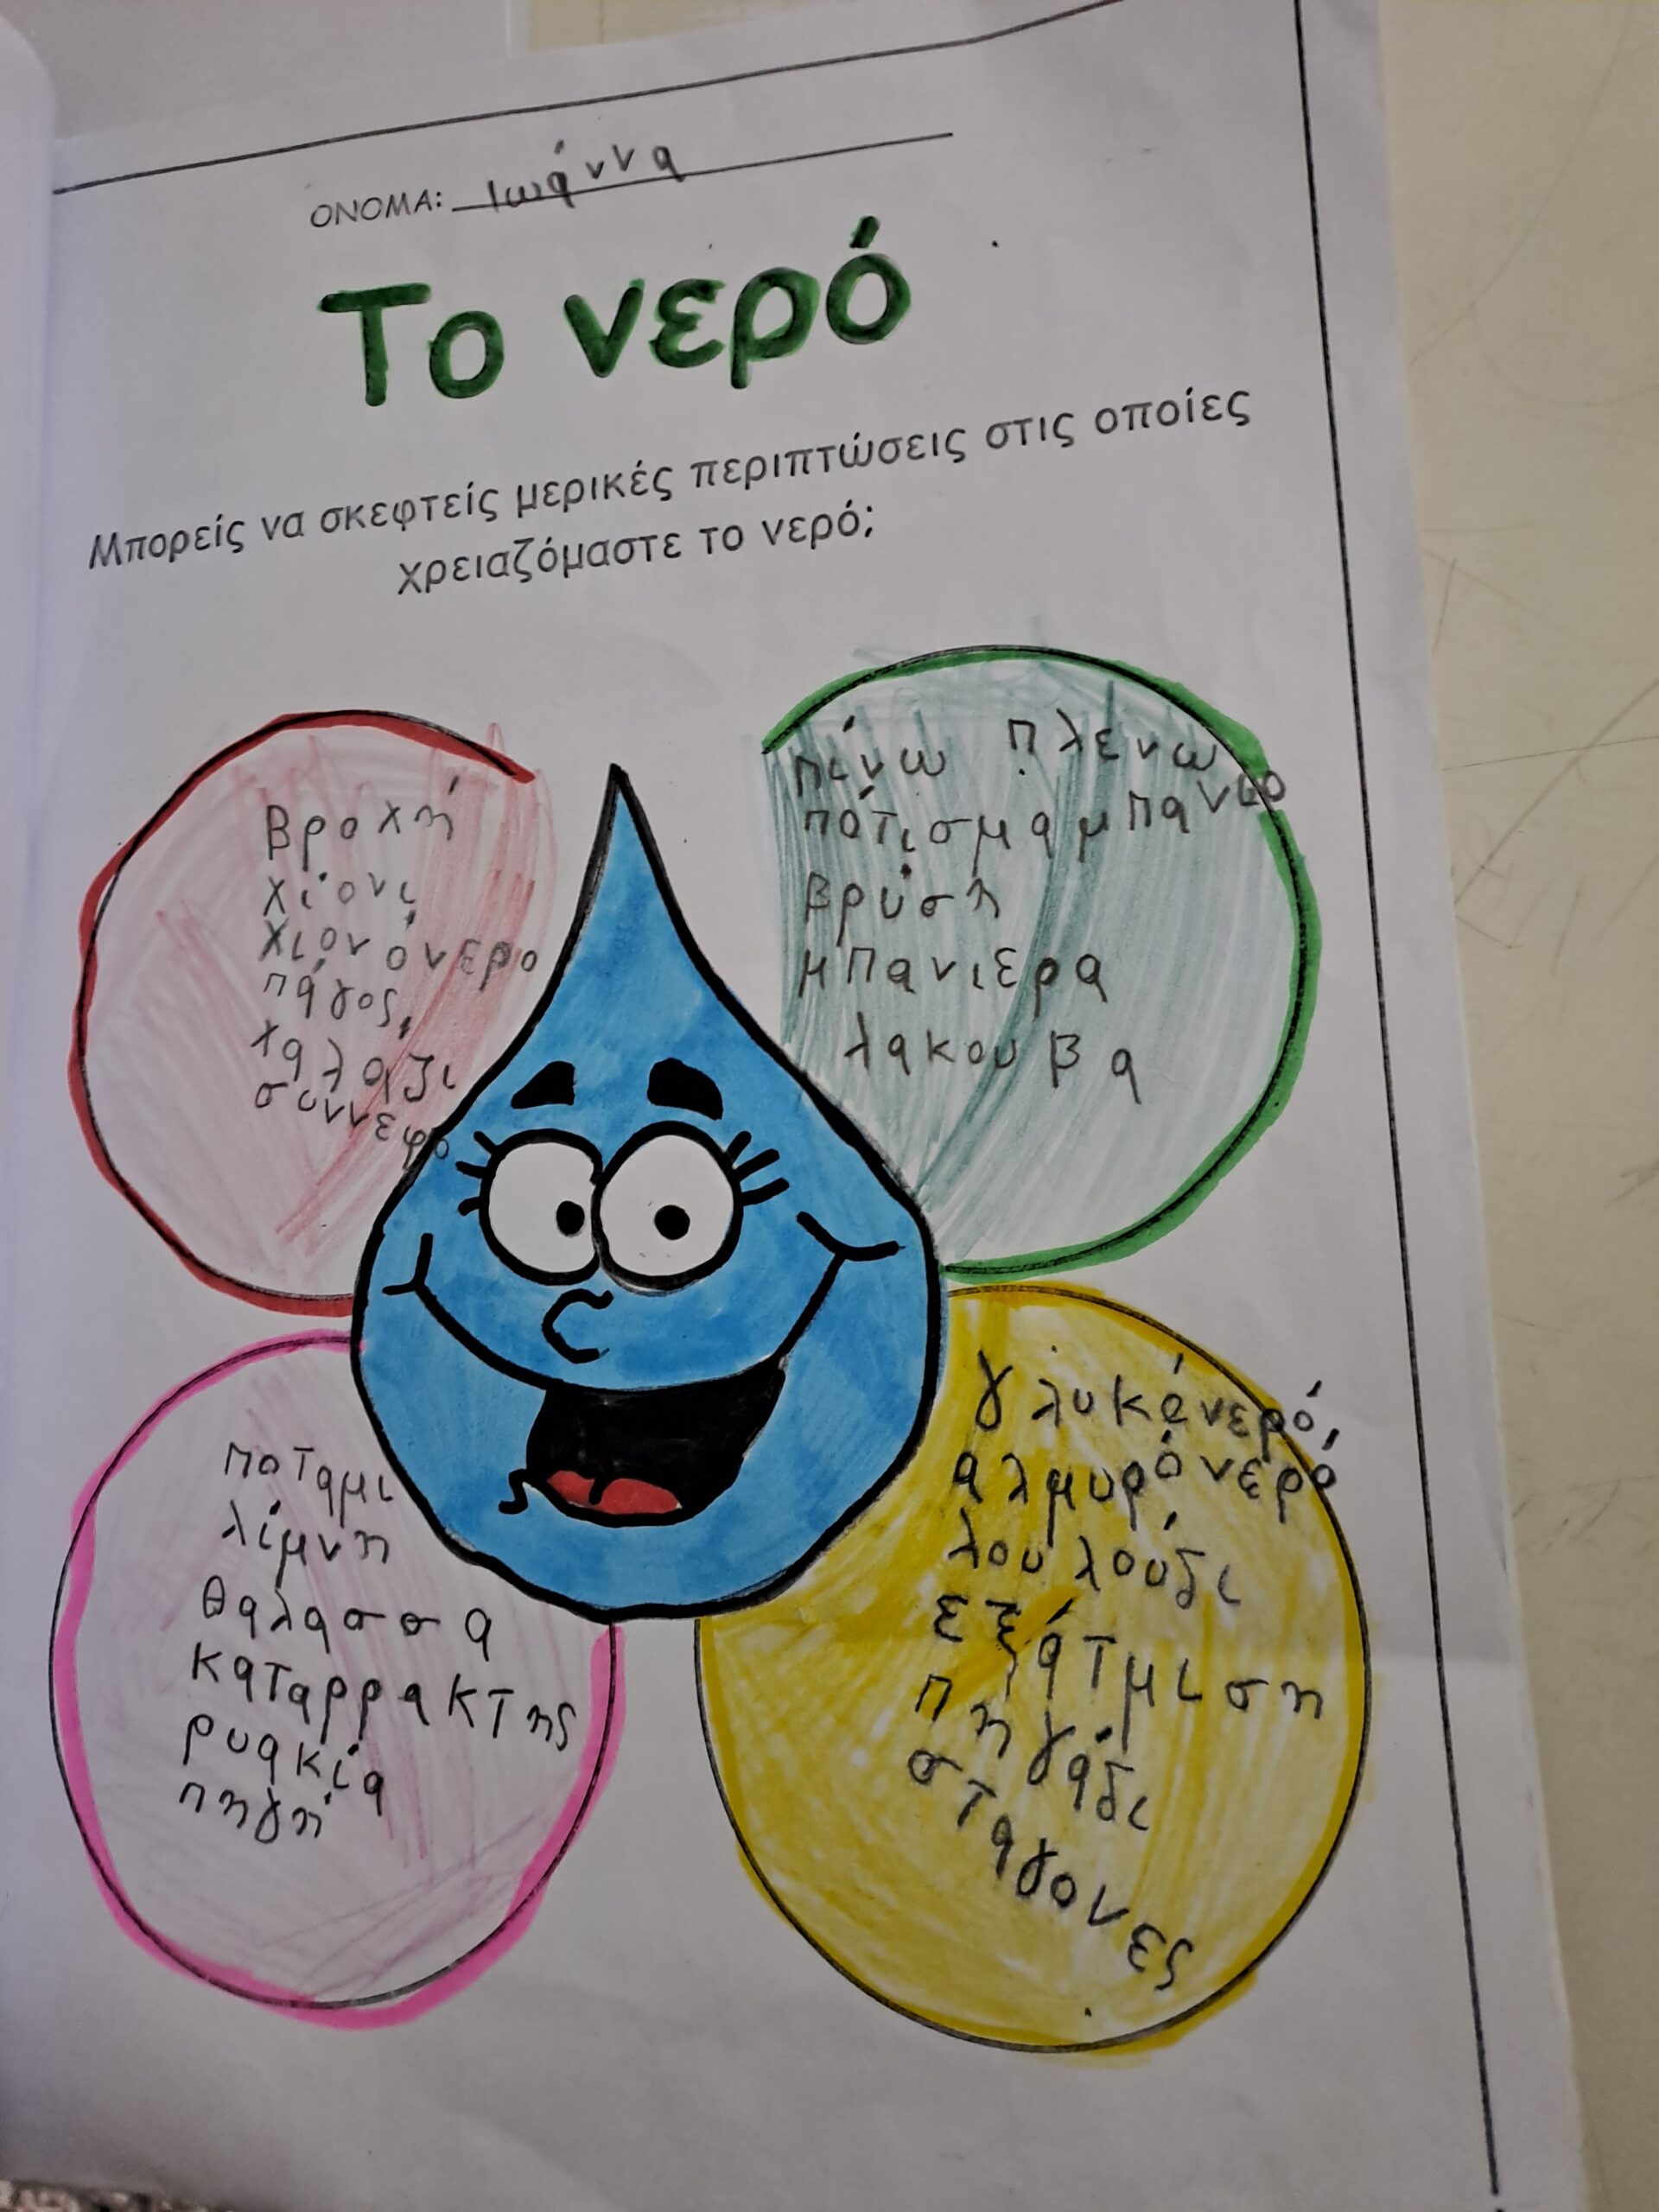 ΟΝΟΜΑ: Ιωάννα
Το νερό
Μπορείς να σκεφτείς μερικές περιπτώσεις στις οποίες
χρειαζόμαστε το νερό;
Βροχή
χίονι
χιονόνερο
πάγος,
χαλαζι
συννεφο
πίνω πλενω
πότισμα μπανιο
βρύση
μπανιερα
λακουβα
ποταμι
λίμνη
θαλασσα
καταρρακτης
ρυακία
πηγή
γλυκόνερό,
αλμυρόνερό
λουλούδι
εξάτμιση
πηγάδι
σταγονες